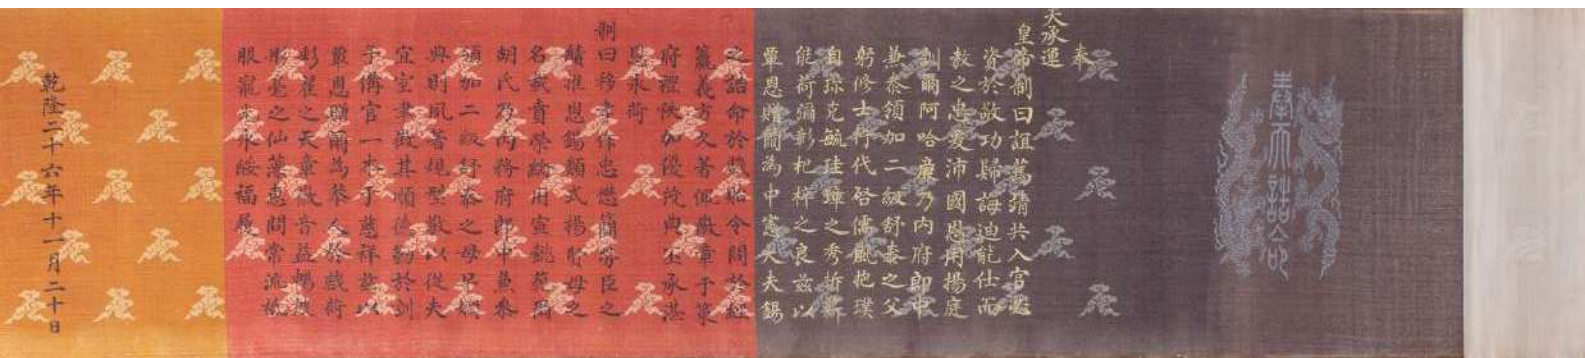 奉天誥命
奉
天承運
皇帝制曰誼篤靖共入官必
資於敬功歸誨迪能仕而
教之忠爰沛國恩用揚庭
訓爾阿哈廉乃內府郎中
兼參領加二級舒泰之父
躬修士行代啓儒風抱璞
自珍克毓珪璋之秀折薪
能荷彌彰杞梓之良茲以
覃恩贈爾為中憲大夫錫
之誥命於戲貽令問於經
籝義方久著佩徽章于策
府禮秩加優茂典丕承湛
恩永荷
制曰移孝作忠懋簡勞臣之
績推恩錫類式揚賢母之
名載賁榮綸用宣懿範爾
胡氏乃內務府郎中兼參
領加二級舒泰之母早嫻
典則夙著規型敬以從夫
宜室聿徵其順德勤於訓
子備官一本于慈祥茲以
覃恩贈爾為恭人於戲衍
彤管之天章徽音益暢被
之仙藻惠問常流祗
服寵光永綏福履
乾隆二十六年十一月二十日